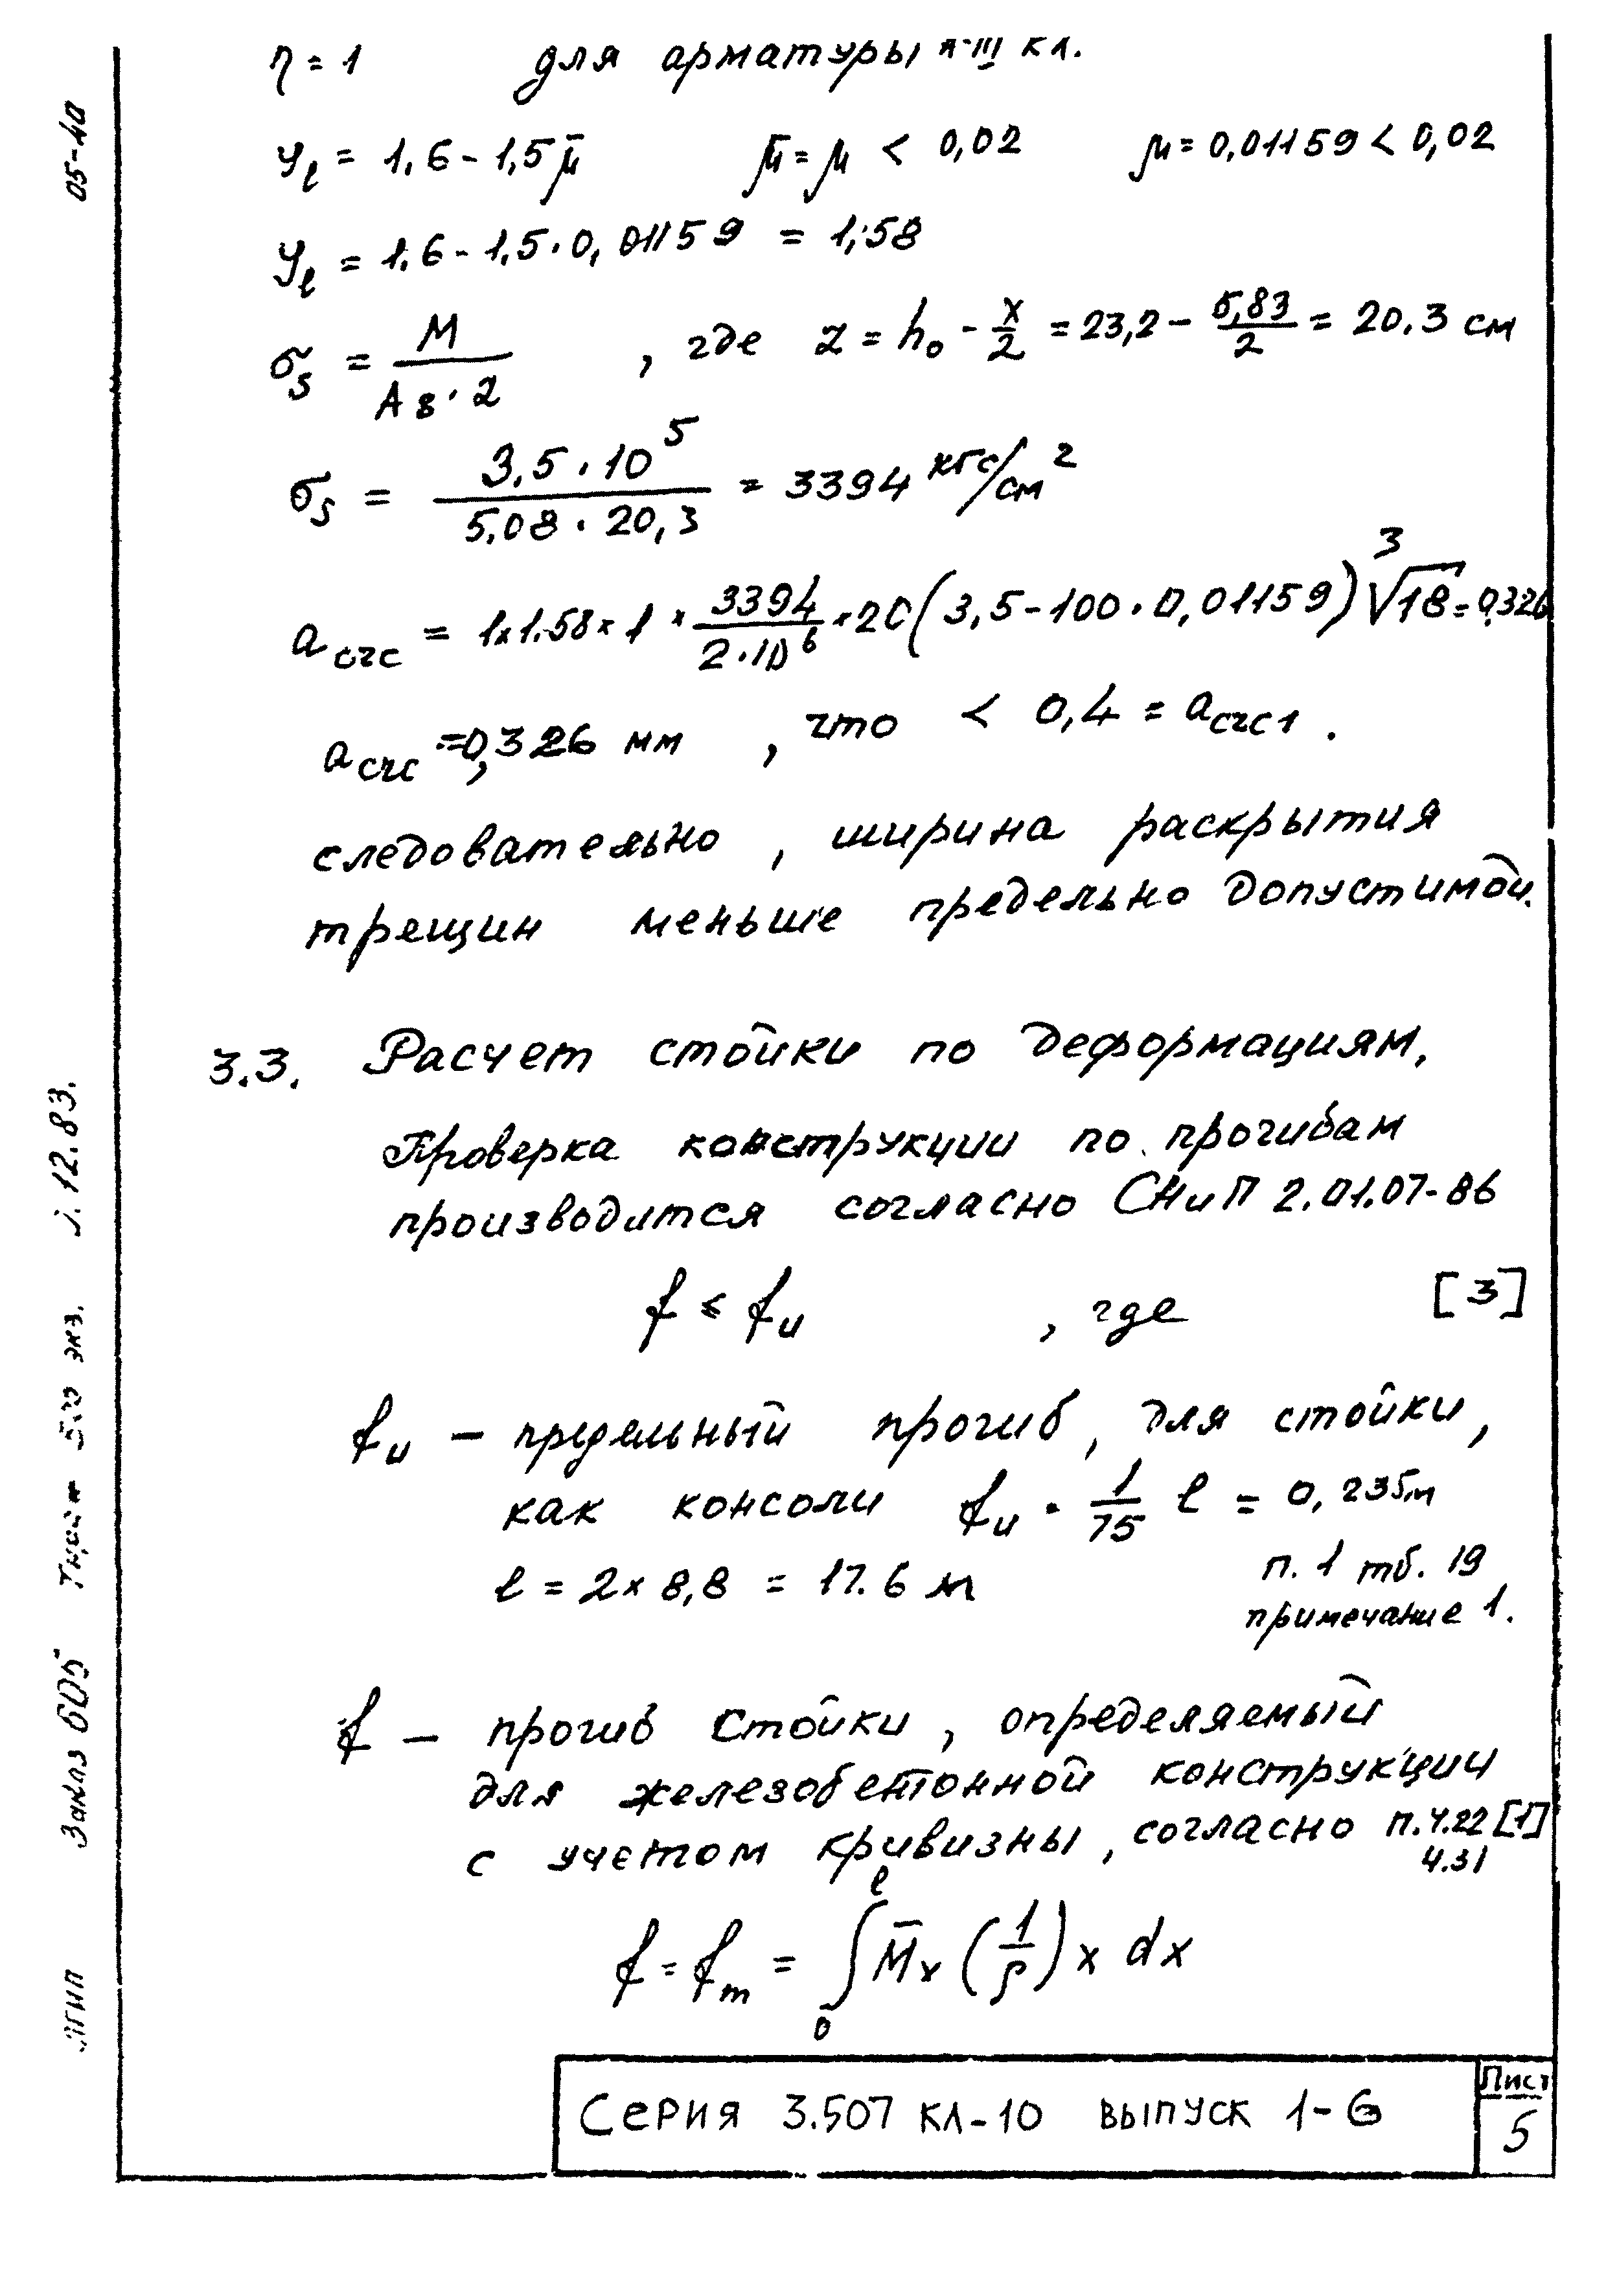 η = 1 для арматуры А-III кл.
φℓ = 1,6 - 1,5 μ̄ μ̄ = μ < 0,02 μ = 0,01159 < 0,02
φℓ = 1,6 - 1,5 · 0,01159 = 1,58
σs = M / (As · z) , где z = h₀ - x/2 = 23,2 - 5,83/2 = 20.3 см
σs = 3,5 · 10⁵ / (5,08 · 20,3) = 3394 кгс/см²
a crc = 1×1.58×1 × 3394 / (2·10⁶) × 20 (3,5 - 100 · 0,01159) ³√18 = 0,326
a crc = 0,326 мм , что < 0,4 = a crc1 .
следовательно , ширина раскрытия
трещин меньше предельно допустимой.
3.3. Расчет стойки по деформациям.
Проверка конструкции по прогибам
производится согласно СНиП 2.01.07-86
f ≤ fu , где [3]
fu — предельный прогиб, для стойки,
как консоли fu = 1/75 ℓ = 0,235м
ℓ = 2 × 8,8 = 17.6 м п. 1 тб. 19
примечание 1.
f — прогиб стойки , определяемый
для железобетонной конструкции
с учетом кривизны, согласно п.4.22 [1]
4.31
f = fm = ∫₀ˡ M̄x (1/ρ) x dx
Серия 3.507 КЛ-10 выпуск 1-6
Лист
5
05-40
12.83.
экз.
Заказ 605